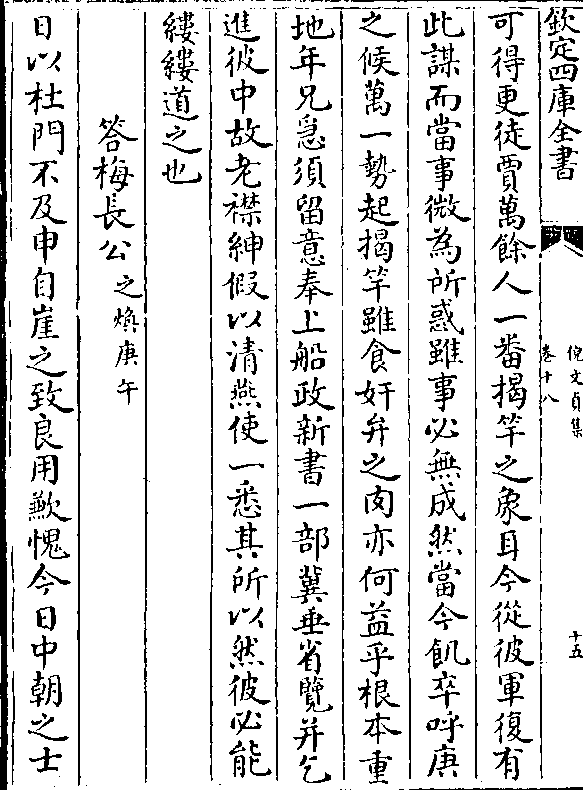 欽定四庫全書
倪文貞集
卷十八
十五
可得更徒賈萬餘人一番揭竿之象耳今從彼軍復有
此謀而當事微為所惑雖事必無成然當今飢卒呼庚
之候萬一勢起揭竿雖食奸弁之肉亦何益乎根本重
地年兄急須留意奉上船政新書一部冀垂省覽并乞
進彼中故老襟紳假以清燕使一悉其所以然彼必能
縷縷道之也
答梅長公之煥庚午
日以杜門不及申自崖之致良用歉愧今日中朝之士